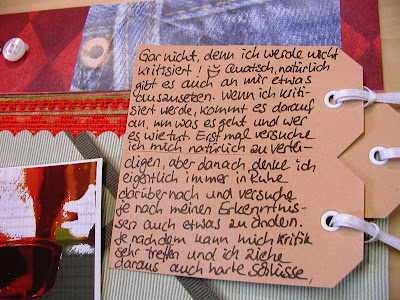 Gar nicht, denn ich werde nicht
kritisiert! Quatsch, natürlich
gibt es auch an mir etwas
auszusetzen. Wenn ich kriti-
siert werde, kommt es darauf
an, um was es geht und wer
es wie tut. Erst mal versuche
ich mich natürlich zu vertei-
digen, aber danach, denke ich
eigentlich immer in Ruhe
darüber nach und versuche
je nach meinen Erkenntnis-
sen auch etwas zu ändern.
Je nachdem kann mich Kritik
sehr treffen und ich ziehe
daraus auch harte Schlüsse,